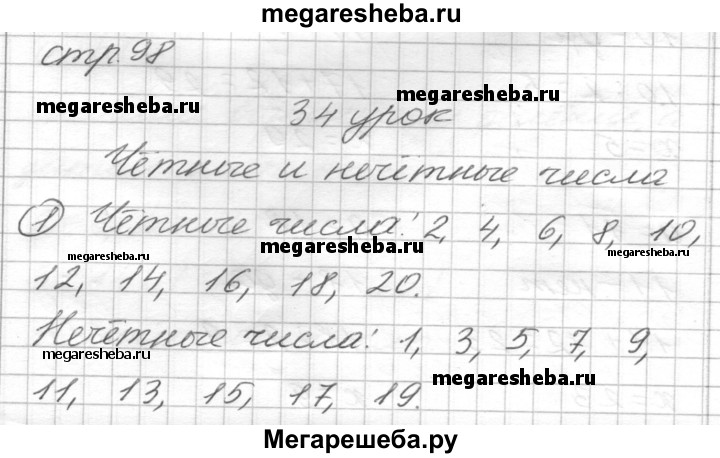 megaresheba.ru
стр. 98
megaresheba.ru
megaresheba.ru
34 урок
Чётные и нечётные числа
① Чётные числа: 2, 4, 6, 8, 10,
megaresheba.ru
megaresheba.ru
megaresheba.ru
12, 14, 16, 18, 20.
Нечётные числа: 1, 3, 5, 7, 9,
megaresheba.ru
megaresheba.ru
11, 13, 15, 17, 19.
Мегарешеба.ру